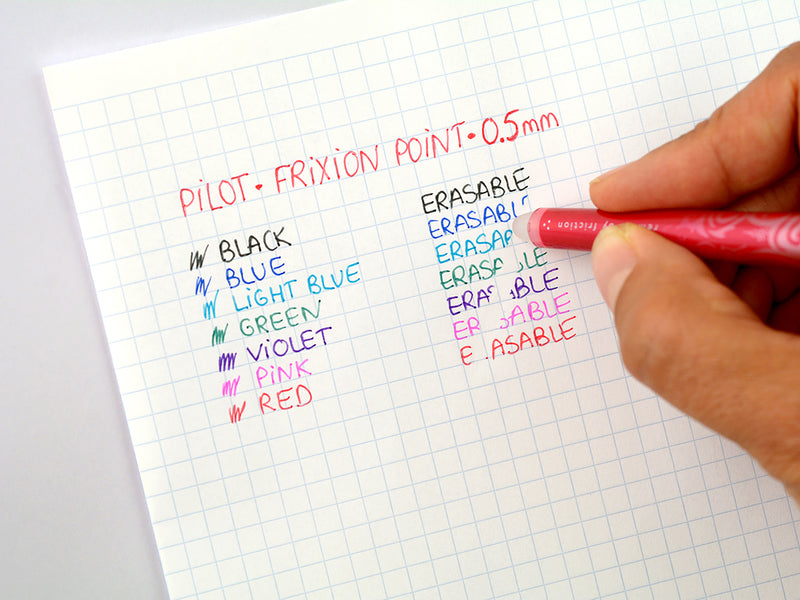 PILOT • FRIXION POINT • 0.5mm
BLACK
BLUE
LIGHT BLUE
GREEN
VIOLET
PINK
RED
ERASABLE
ERASABL
ERASA
ERASA LE
ERA ABLE
ER SABLE
E ASABLE
friction